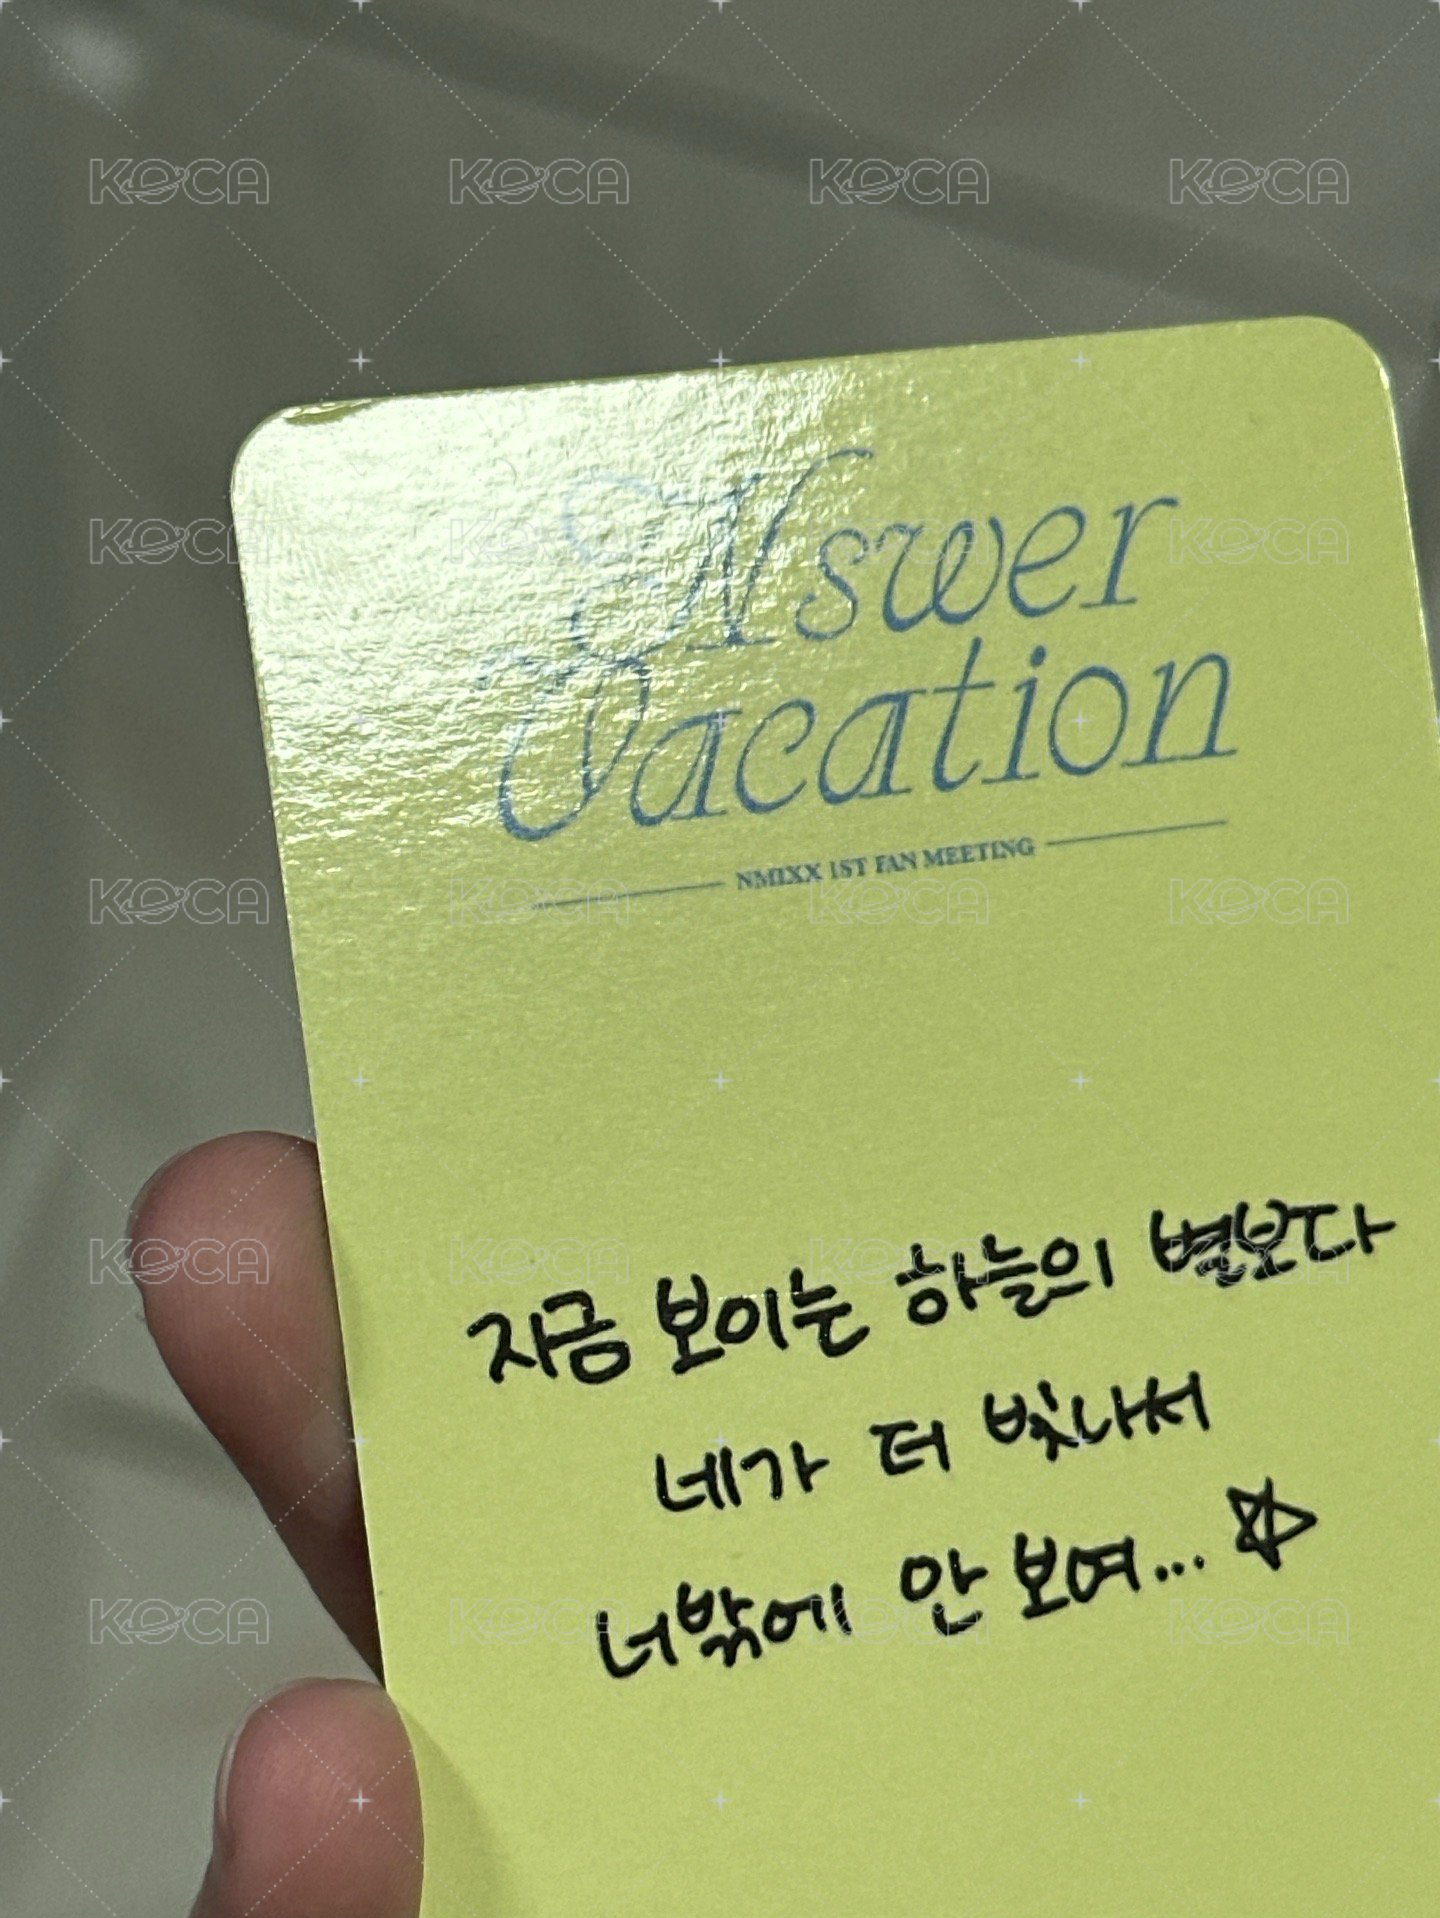 KOCA KOCA KOCA KOCA
KOCA KOCA KOCA KOCA
Answer
Vacation
NMIXX 1ST FAN MEETING
KOCA KOCA KOCA KOCA
지금 보이는 하늘의 별보다
KOCA KOCA KOCA KOCA
네가 더 빛나서
너밖에 안 보여... ☆
KOCA KOCA KOCA KOCA